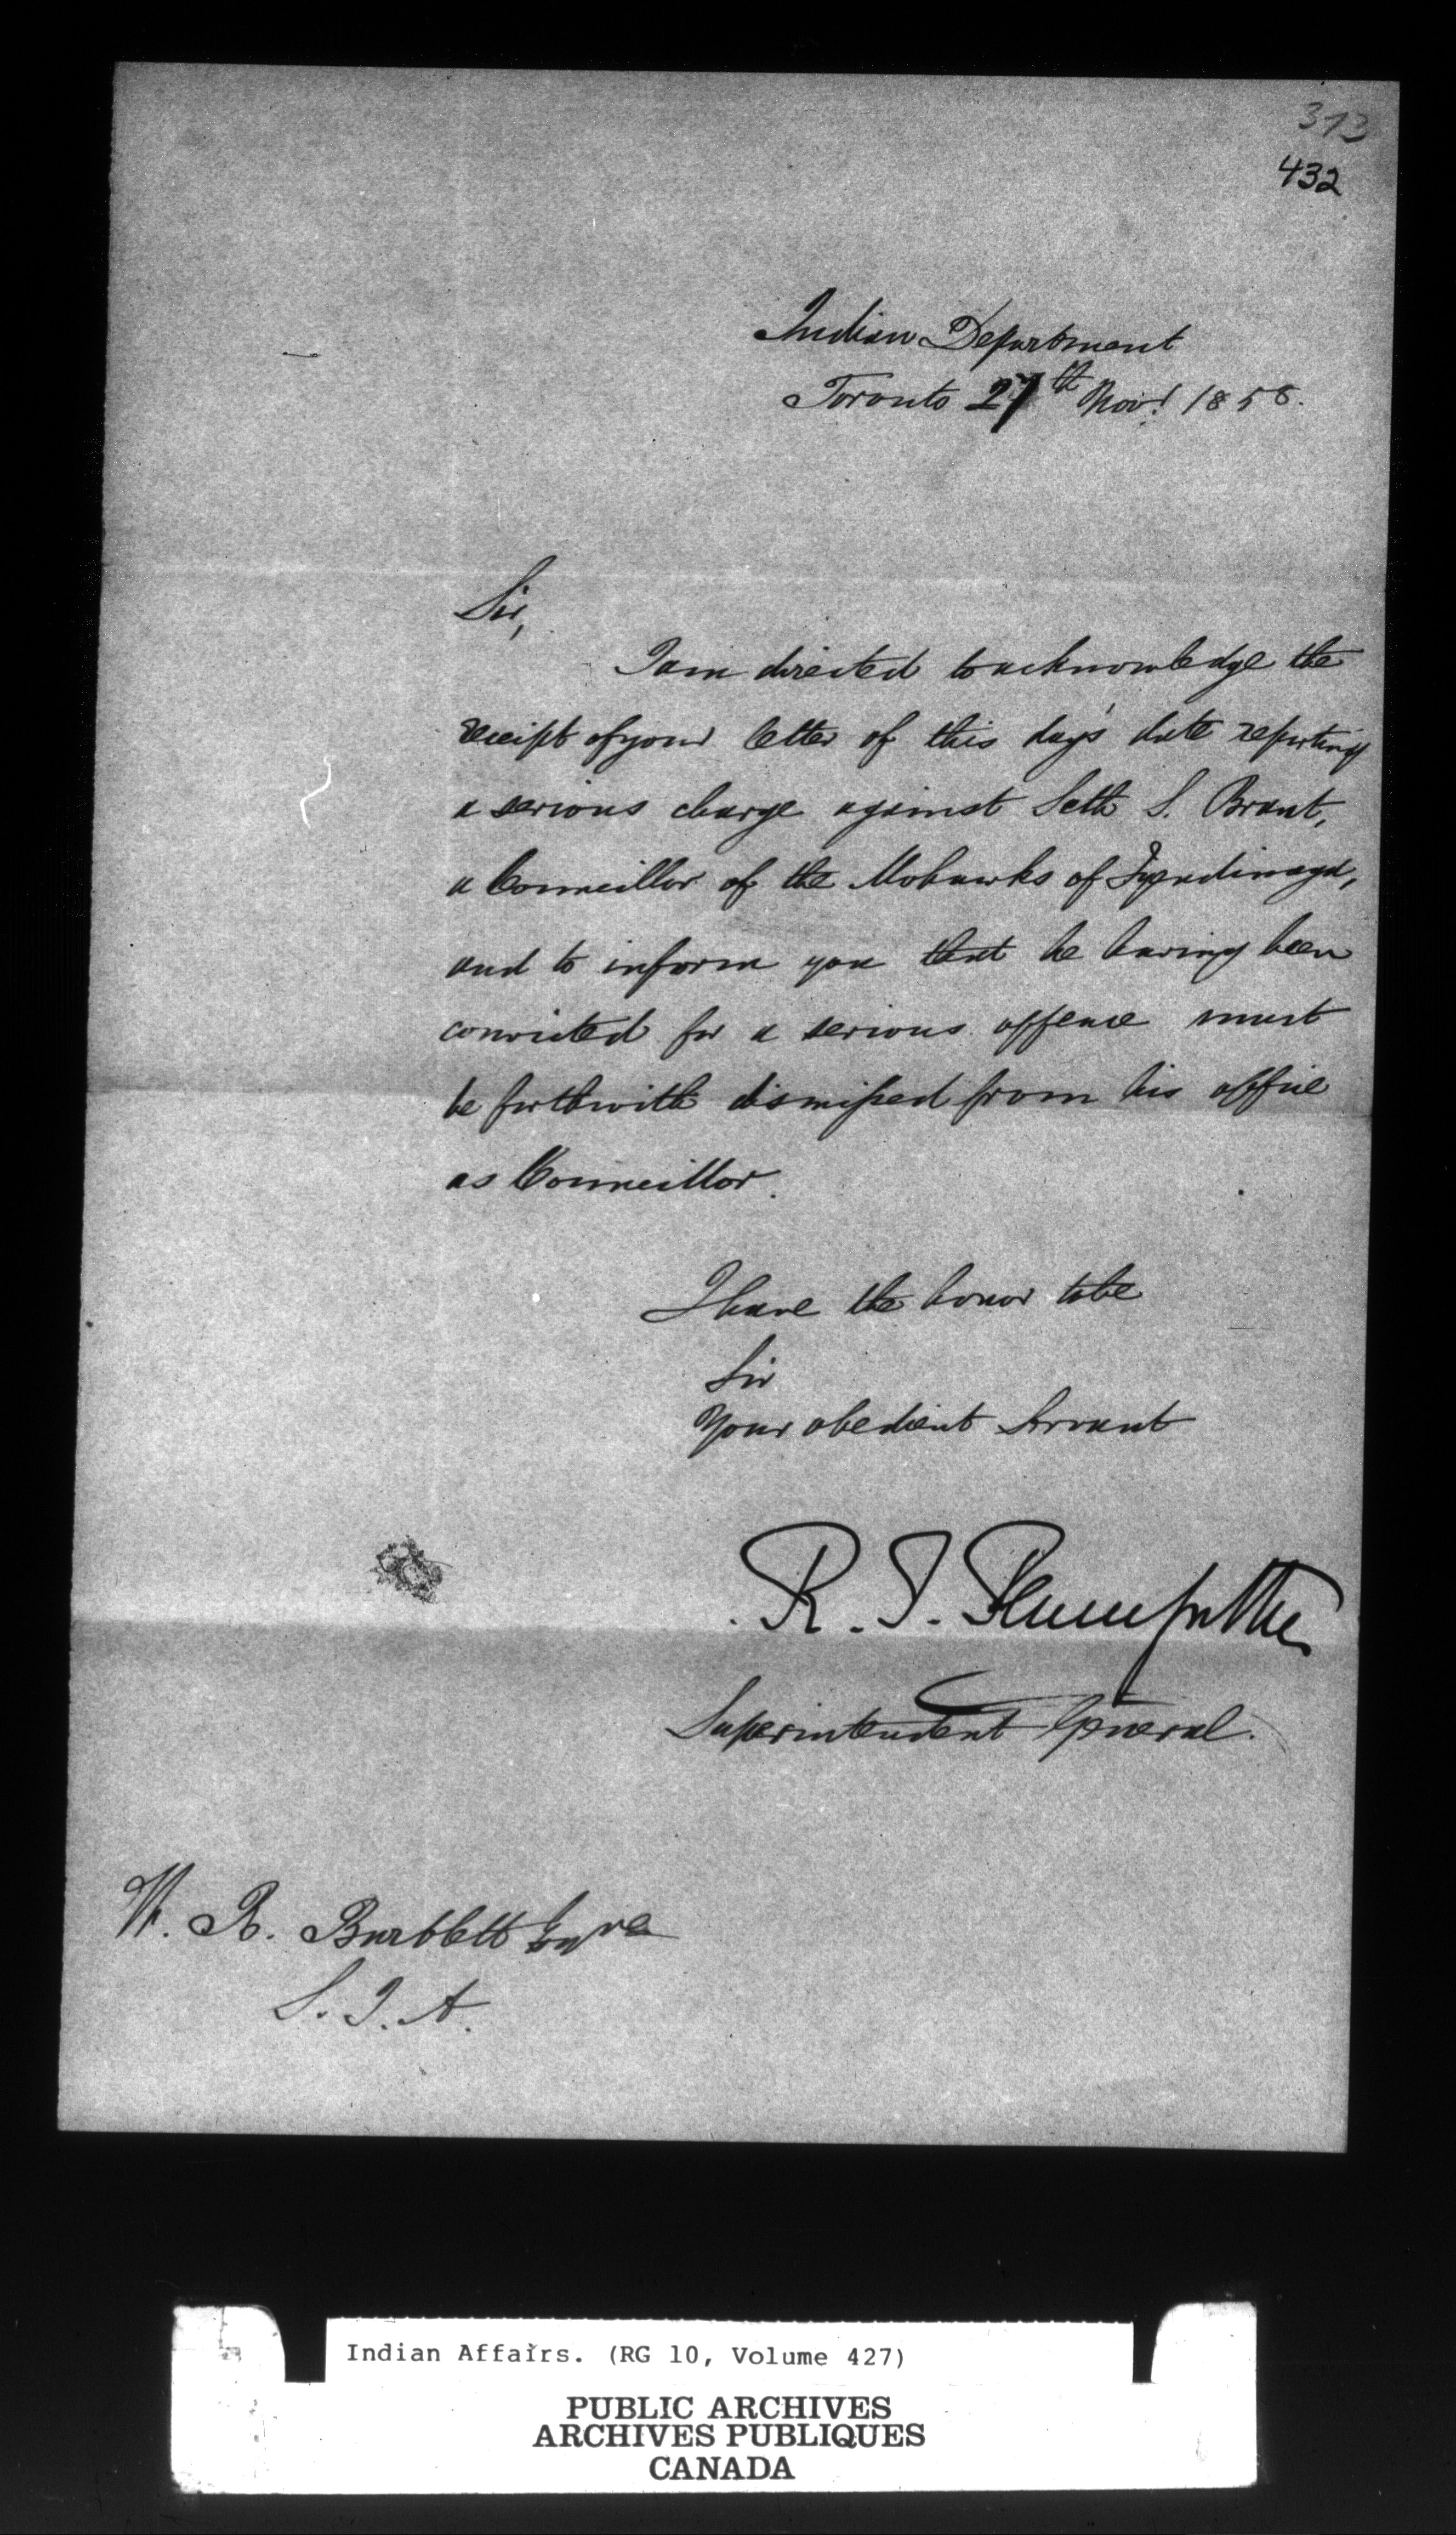 313
432
Indian Department
Toronto 27th Novr 1858.
Sir,
I am directed to acknowledge the
receipt of your letter of this day's date reporting
a serious charge against Seth S. Brant,
a Councillor of the Mohawks of Tyendinaga,
and to inform you that he having been
convicted for a serious offence must
be forthwith dismissed from his office
as Councillor.
I have the honor to be
Sir
Your obedient Servant
R. T. Pennefather
Superintendent General.
W. R. Bartlett Esqre
S. I. A.
Indian Affairs. (RG 10, Volume 427)
PUBLIC ARCHIVES
ARCHIVES PUBLIQUES
CANADA